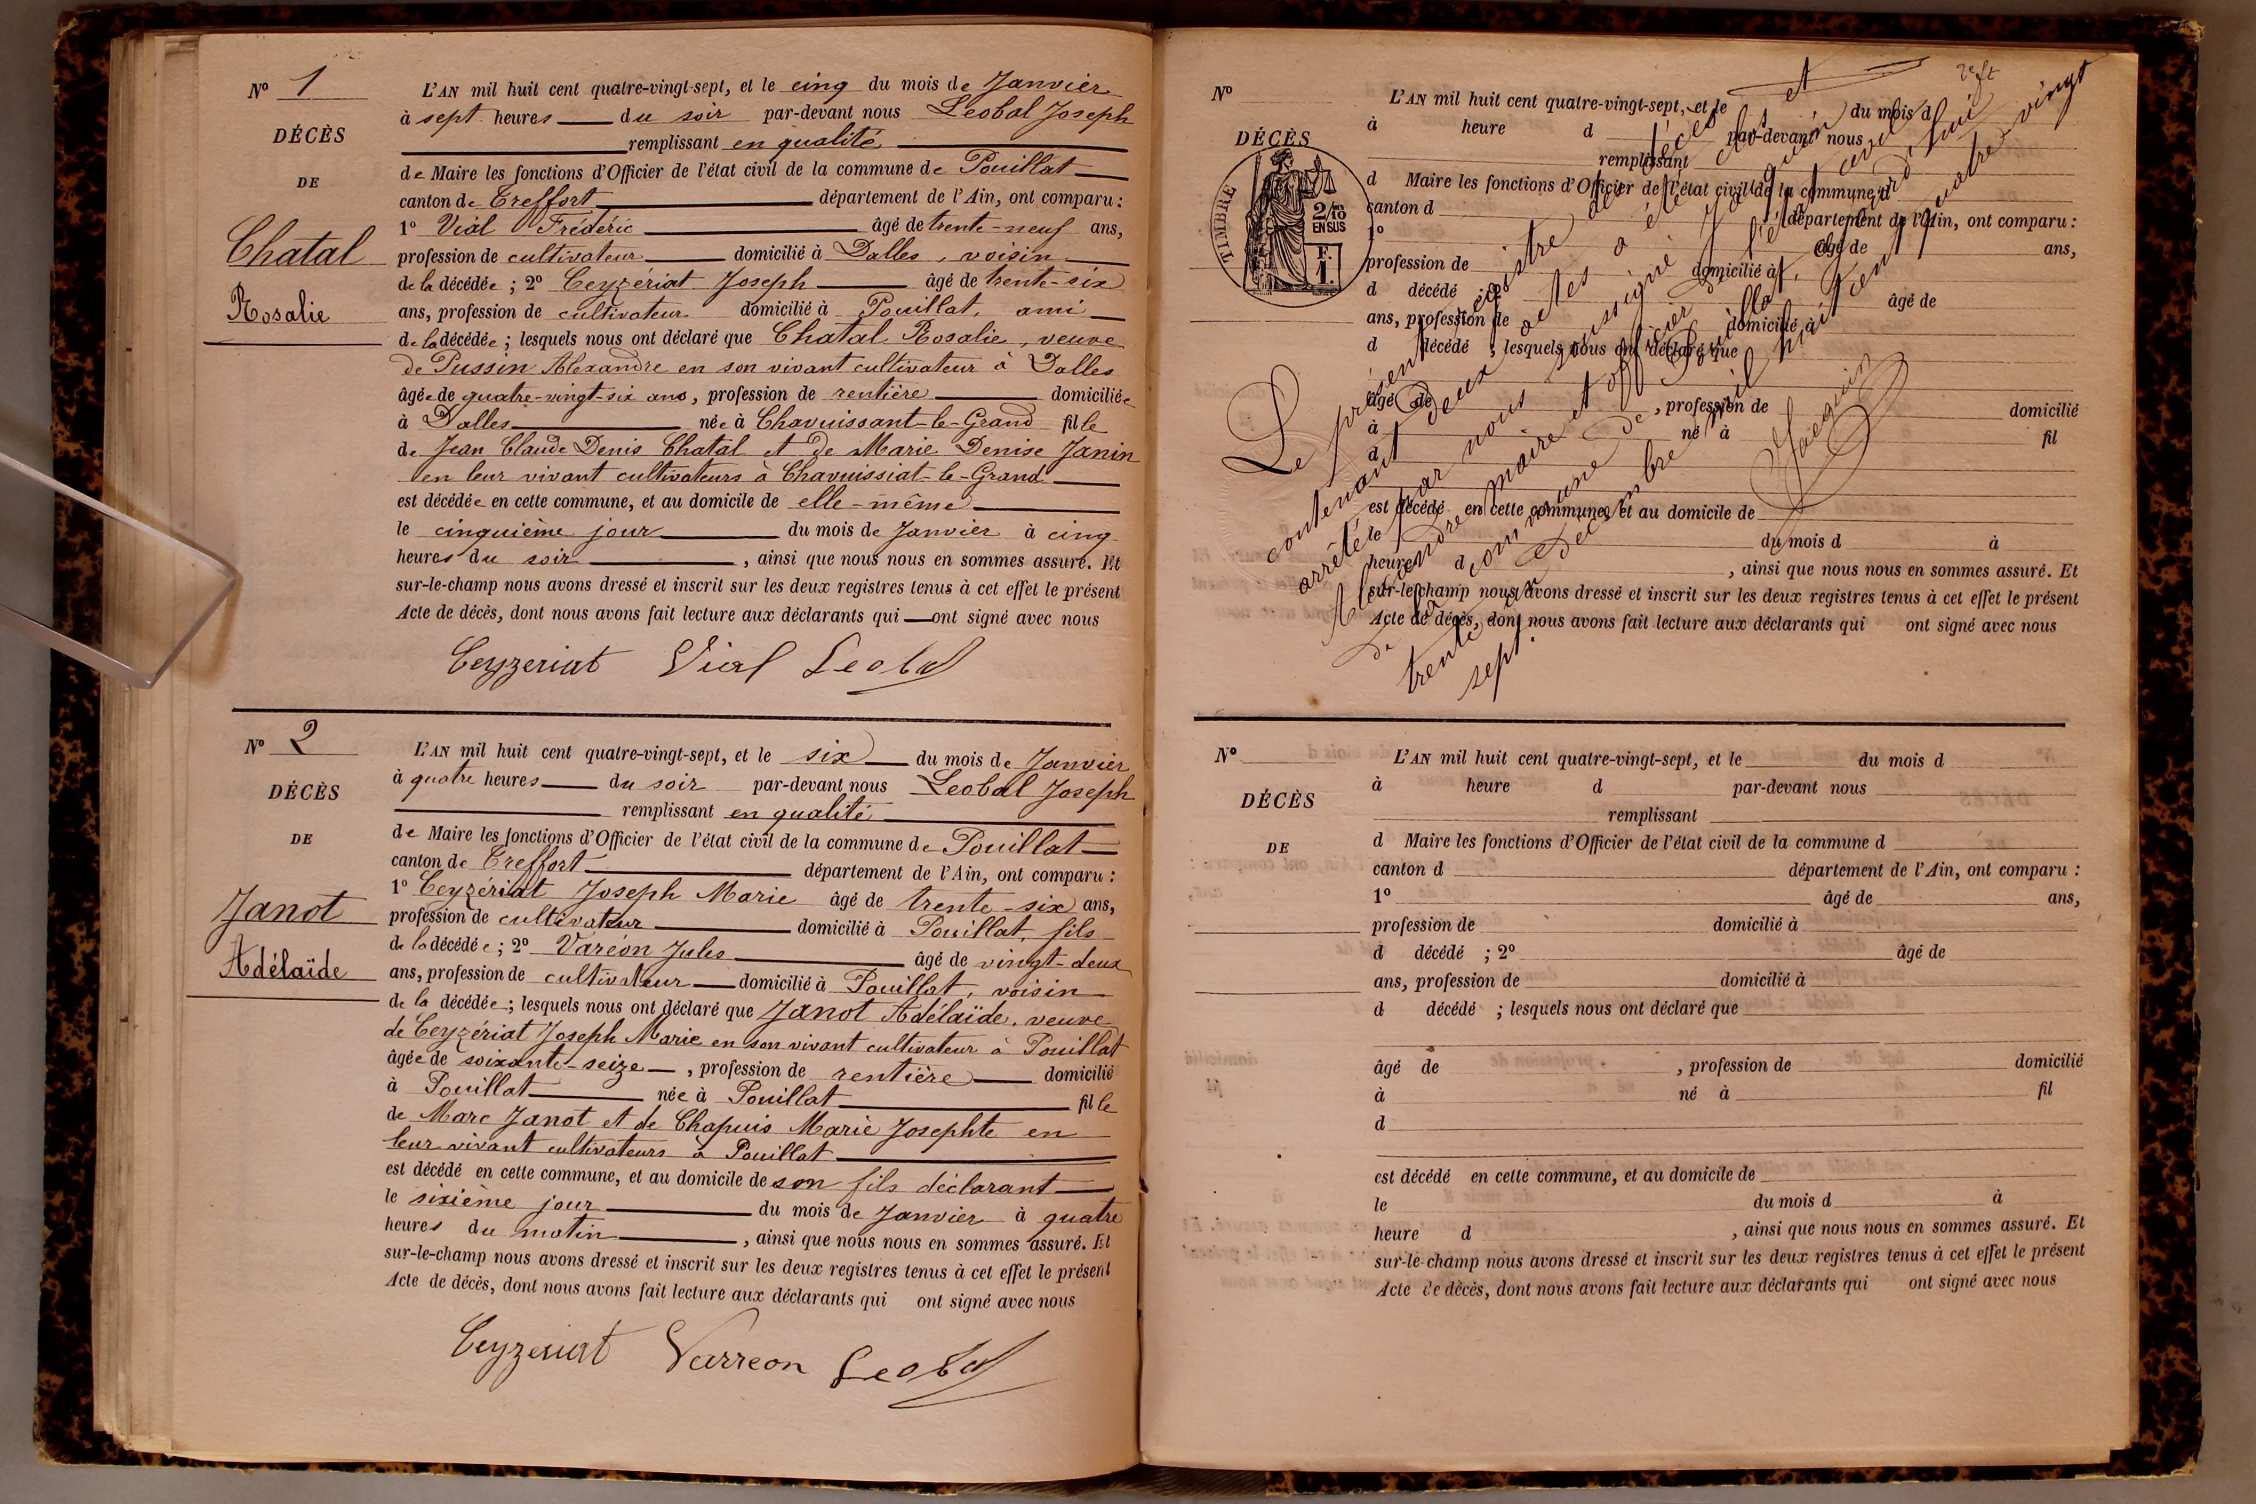 N° 1
DÉCÈS
DE
Chatal
Rosalie
L'AN mil huit cent quatre-vingt-sept, et le cinq du mois de Janvier
à sept heures du soir par-devant nous Leobal Joseph
remplissant en qualité
de Maire les fonctions d'Officier de l'état civil de la commune de Pouillat
canton de Treffort département de l'Ain, ont comparu :
1° Vial Frédéric âgé de trente-neuf ans,
profession de cultivateur domicilié à Dalles, voisin
de la décédée ; 2° Ceyzériat Joseph âgé de trente-six
ans, profession de cultivateur domicilié à Pouillat, ami
de la décédée ; lesquels nous ont déclaré que Chatal Rosalie, veuve
de Pussin Alexandre en son vivant cultivateur à Dalles
âgée de quatre-vingt-six ans, profession de rentière domiciliée
à Dalles née à Chavuissant-le-Grand fille
de Jean Claude Denis Chatal et de Marie Denise Janin
en leur vivant cultivateurs à Chavuissiat-le-Grand
est décédée en cette commune, et au domicile de elle-même
le cinquième jour du mois de Janvier à cinq
heures du soir, ainsi que nous nous en sommes assuré. Et
sur-le-champ nous avons dressé et inscrit sur les deux registres tenus à cet effet le présent
Acte de décès, dont nous avons fait lecture aux déclarants qui ont signé avec nous
Ceyzeriat Vial Leobal
N° 2
DÉCÈS
DE
Janot
Adélaïde
L'AN mil huit cent quatre-vingt-sept, et le six du mois de Janvier
à quatre heures du soir par-devant nous Leobal Joseph
remplissant en qualité
de Maire les fonctions d'Officier de l'état civil de la commune de Pouillat
canton de Treffort département de l'Ain, ont comparu :
1° Ceyzériat Joseph Marie âgé de trente-six ans,
profession de cultivateur domicilié à Pouillat, fils
de la décédée ; 2° Varéon Jules âgé de vingt-deux
ans, profession de cultivateur domicilié à Pouillat, voisin
de la décédée ; lesquels nous ont déclaré que Janot Adélaïde, veuve
de Ceyzériat Joseph Marie en son vivant cultivateur à Pouillat
âgée de soixante-seize, profession de rentière domicilié
à Pouillat née à Pouillat fille
de Marc Janot et de Chapuis Marie Josephte en
leur vivant cultivateurs à Pouillat
est décédé en cette commune, et au domicile de son fils déclarant
le sixième jour du mois de Janvier à quatre
heures du matin, ainsi que nous nous en sommes assuré. Et
sur-le-champ nous avons dressé et inscrit sur les deux registres tenus à cet effet le présent
Acte de décès, dont nous avons fait lecture aux déclarants qui ont signé avec nous
Ceyzeriat Varreon Leobal
N°
DÉCÈS
TIMBRE
2/10
EN SUS
F.
1.
L'AN mil huit cent quatre-vingt-sept, et le du mois d
à heure d par-devant nous
remplissant
d Maire les fonctions d'Officier de l'état civil de la commune d
canton d département de l'Ain, ont comparu :
1° âgé de ans,
profession de domicilié à
d décédé ; 2° âgé de
ans, profession de domicilié à
d décédé ; lesquels nous ont déclaré que
âgé de , profession de domicilié
à né à fil
d
est décédé en cette commune, et au domicile de
le du mois d à
heure d , ainsi que nous nous en sommes assuré. Et
sur-le-champ nous avons dressé et inscrit sur les deux registres tenus à cet effet le présent
Acte de décès, dont nous avons fait lecture aux déclarants qui ont signé avec nous
Le présent registre des décès
contenant deux actes a été clos et
arrêté par nous soussigné Jacquin
Alexandre maire et officier de l'état civil
de la commune de Pouillat, aujourd'hui
trente un Décembre mil huit cent quatre-vingt
sept.
Jacquin
N°
DÉCÈS
DE
L'AN mil huit cent quatre-vingt-sept, et le du mois d
à heure d par-devant nous
remplissant
d Maire les fonctions d'Officier de l'état civil de la commune d
canton d département de l'Ain, ont comparu :
1° âgé de ans,
profession de domicilié à
d décédé ; 2° âgé de
ans, profession de domicilié à
d décédé ; lesquels nous ont déclaré que
âgé de , profession de domicilié
à né à fil
d
est décédé en cette commune, et au domicile de
le du mois d à
heure d , ainsi que nous nous en sommes assuré. Et
sur-le-champ nous avons dressé et inscrit sur les deux registres tenus à cet effet le présent
Acte de décès, dont nous avons fait lecture aux déclarants qui ont signé avec nous